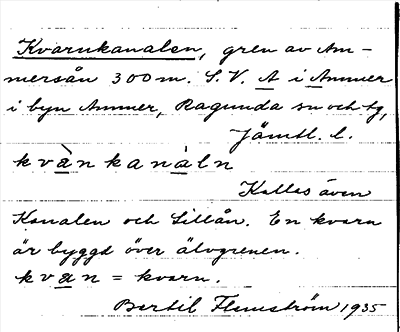 Kvarnkanalen, gren av Am-
mersån 300 m. S.V. A i Ammer
i byn Ammer, Ragunda sn och tg,
Jämtl. l.
kvànkanàln
Kallas även
Kanalen och Lillån. En kvarn
är byggd över älvgrenen.
kvan = kvarn.
Bertil Flemström 1935